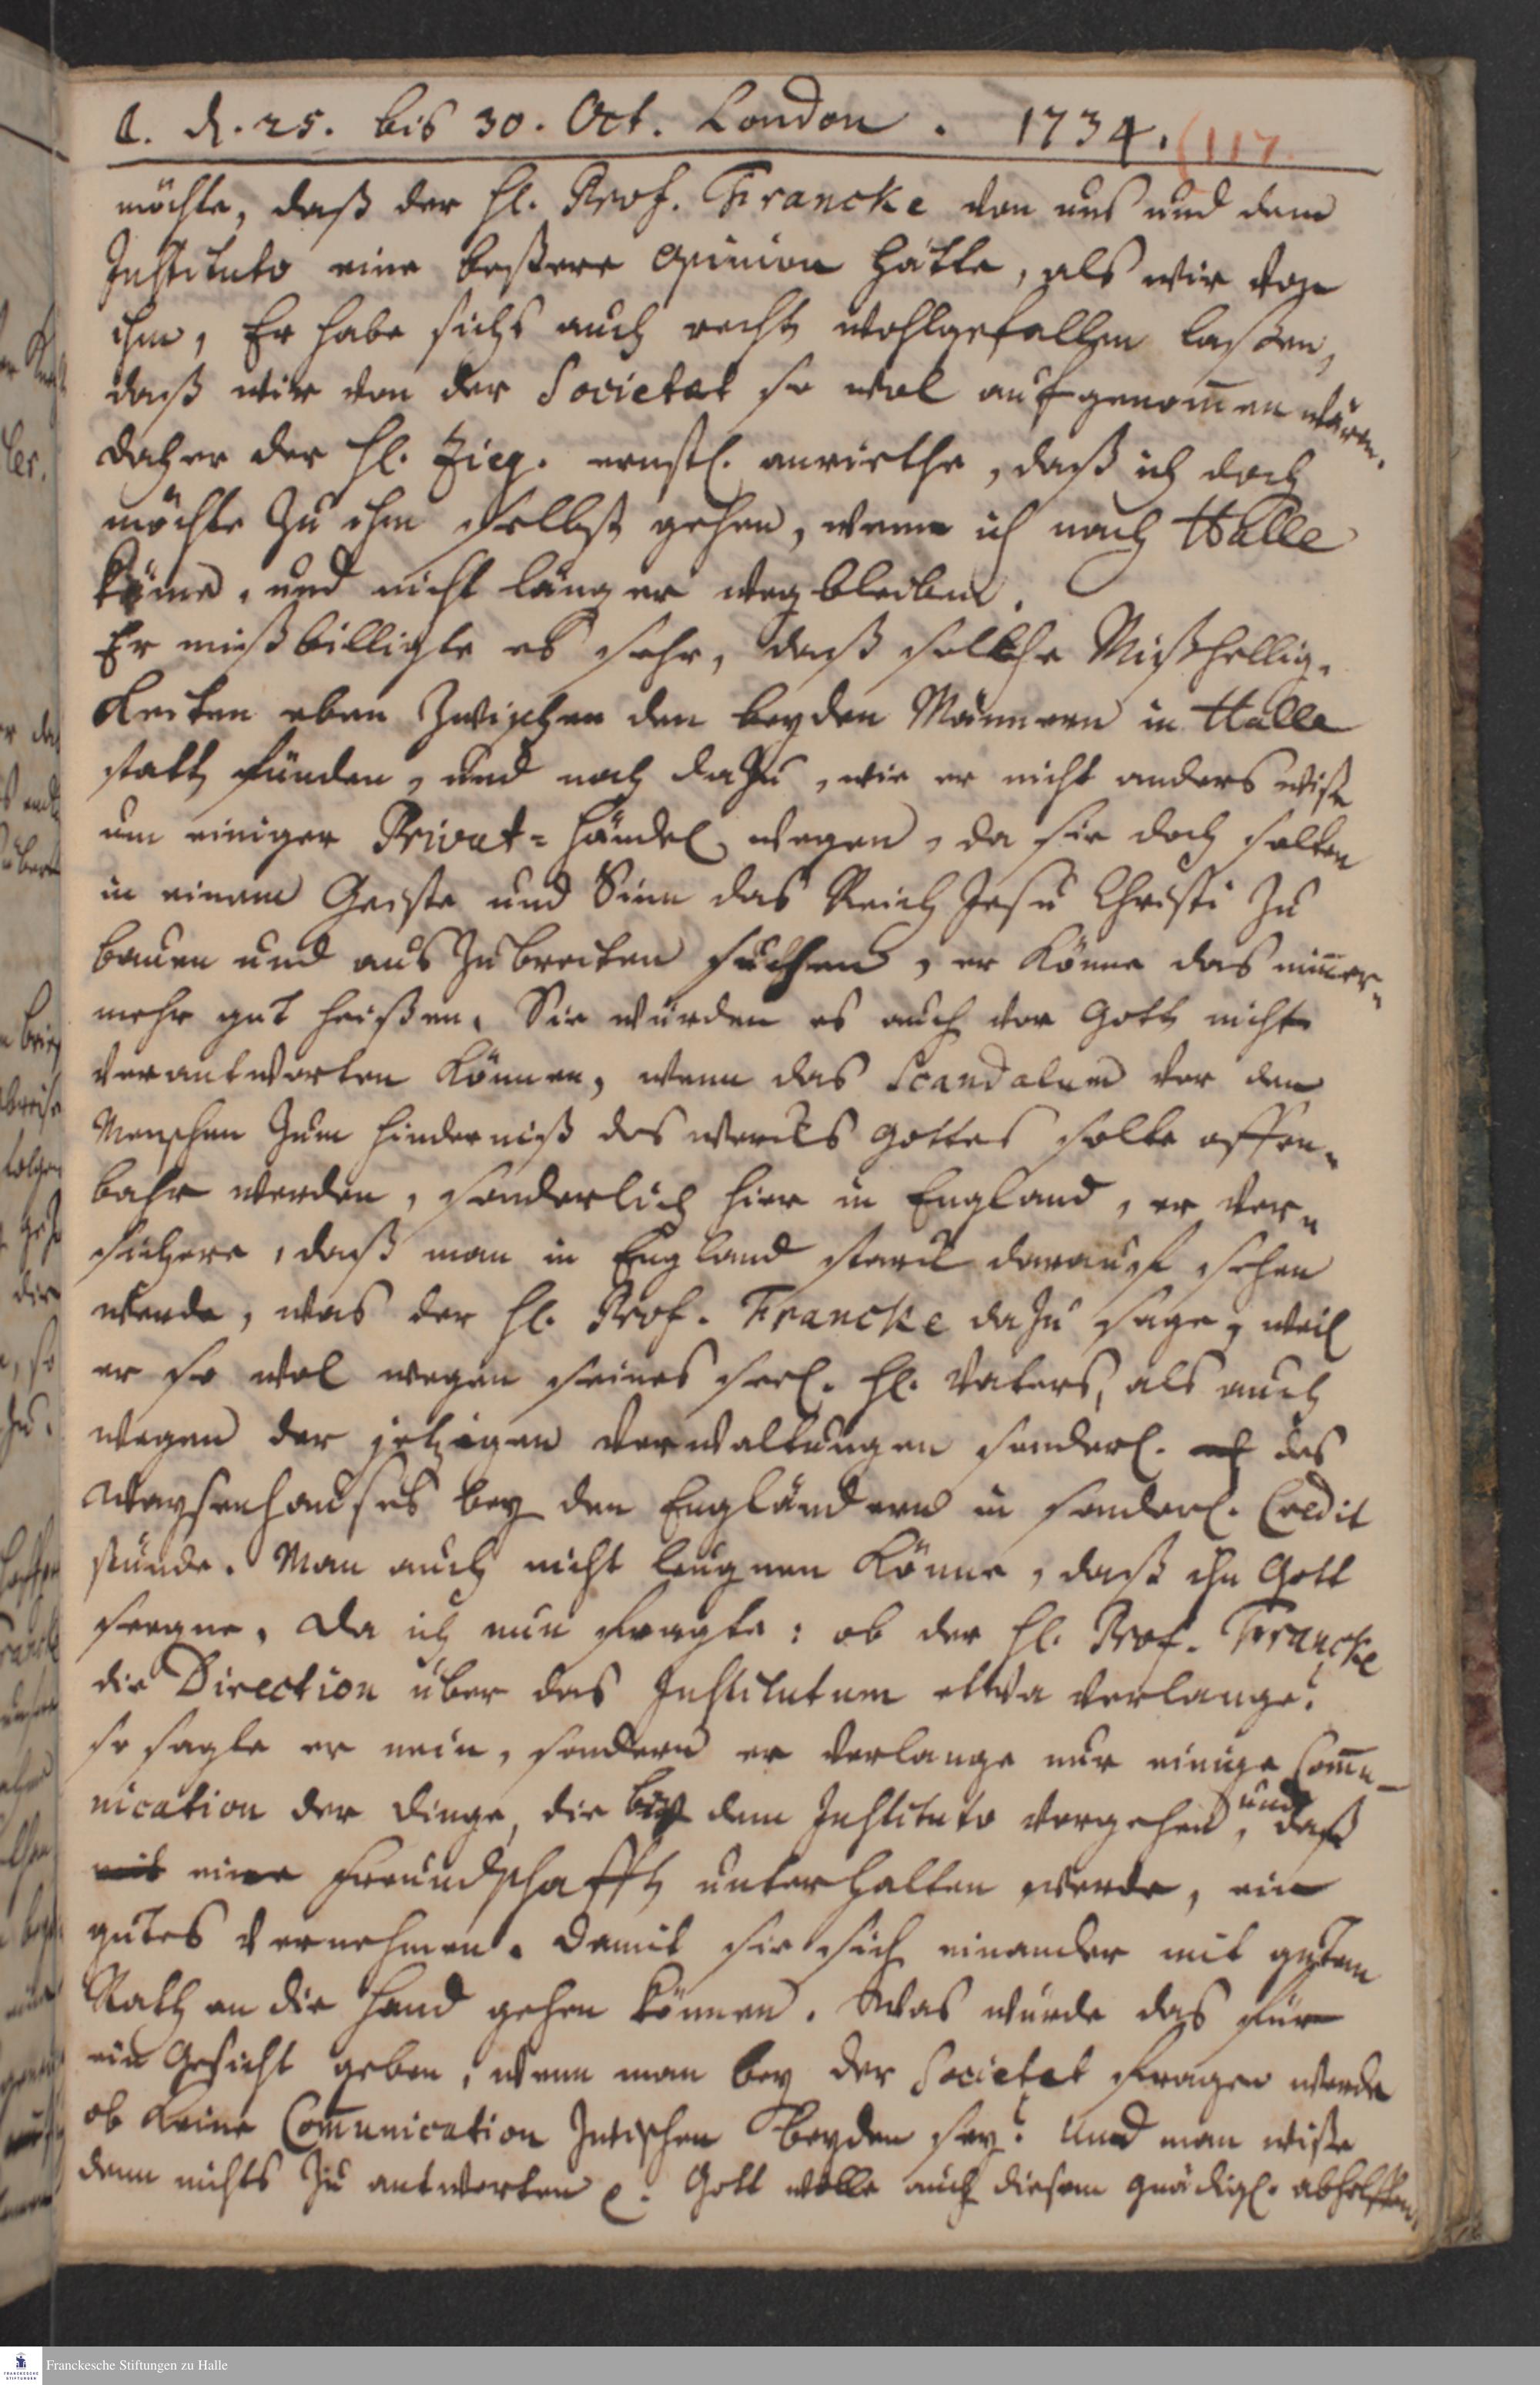 d. 25. bis 30. Oct. London. 1734. (117
möchte, daß der H. Prof. Francke von uns und dem
Instituto eine beßere opinion hätte, als wir von
ihm, Er habe sichs auch recht wohlgefallen laßen,
daß wir von der Societat so wol aufgenom̄en wären.
daher der H. Zieg. ernstl. anriethe, daß ich doch
möchte zu ihm selbst gehen, wenn ich nach Halle
käme, und nicht länger wegbleiben.
Er mißbilligte es sehr, daß solche Mißhellig-
keiten eben zwischen den beyden Männern in Halle
statt fünden, und noch dazu, wie er nicht anders wiße
um einiger Privat-Händel wegen, da sie doch solten
in einem Geiste und Sinn das Reich Jesu Christi zu
bauen und auszubreiten suchen, er könne das nim̄er-
mehr gut heißen. Sie würden es auch vor Gott nicht
verantworten können, wenn das Scandalum vor den
Menschen zum Hinderniß des Wercks Gottes solte offen-
bahr werden, sonderlich hier in England, er ver-
sichere, daß man in England starck darauf sehen
werde, was der H. Prof. Francke dazu sage, weil
er so wol wegen seines seel. H. Vaters, als auch
wegen der jetzigen Verwaltungen sonderl. des
Waysenhauses bey den Engländern in sonderl. Credit
stünde. Man auch nicht leugnen könne, daß ihn Gott
seegne. Da ich nun fragte: ob der H. Prof. Francke
die Direction über das Institutum etwa verlange?
so sagte er nein, sondern er verlange nur einige Com̄u-
nication der Dinge, die bey dem Instituto vorgehen, und daß
eine Freundschafft unterhalten werde, ein
gutes Vernehmen. damit sie sich einander mit gutem
Rath an die Hand gehen können. Was würde das für
ein Gesicht geben, wenn man bey der Societat fragen werde
ob keine Com̄unication zwischen beyden sey? Und man wiße
denn nichts zu antworten. Gott wolle auch diesem gnädigl. abhelffen.
Franckesche Stiftungen zu Halle